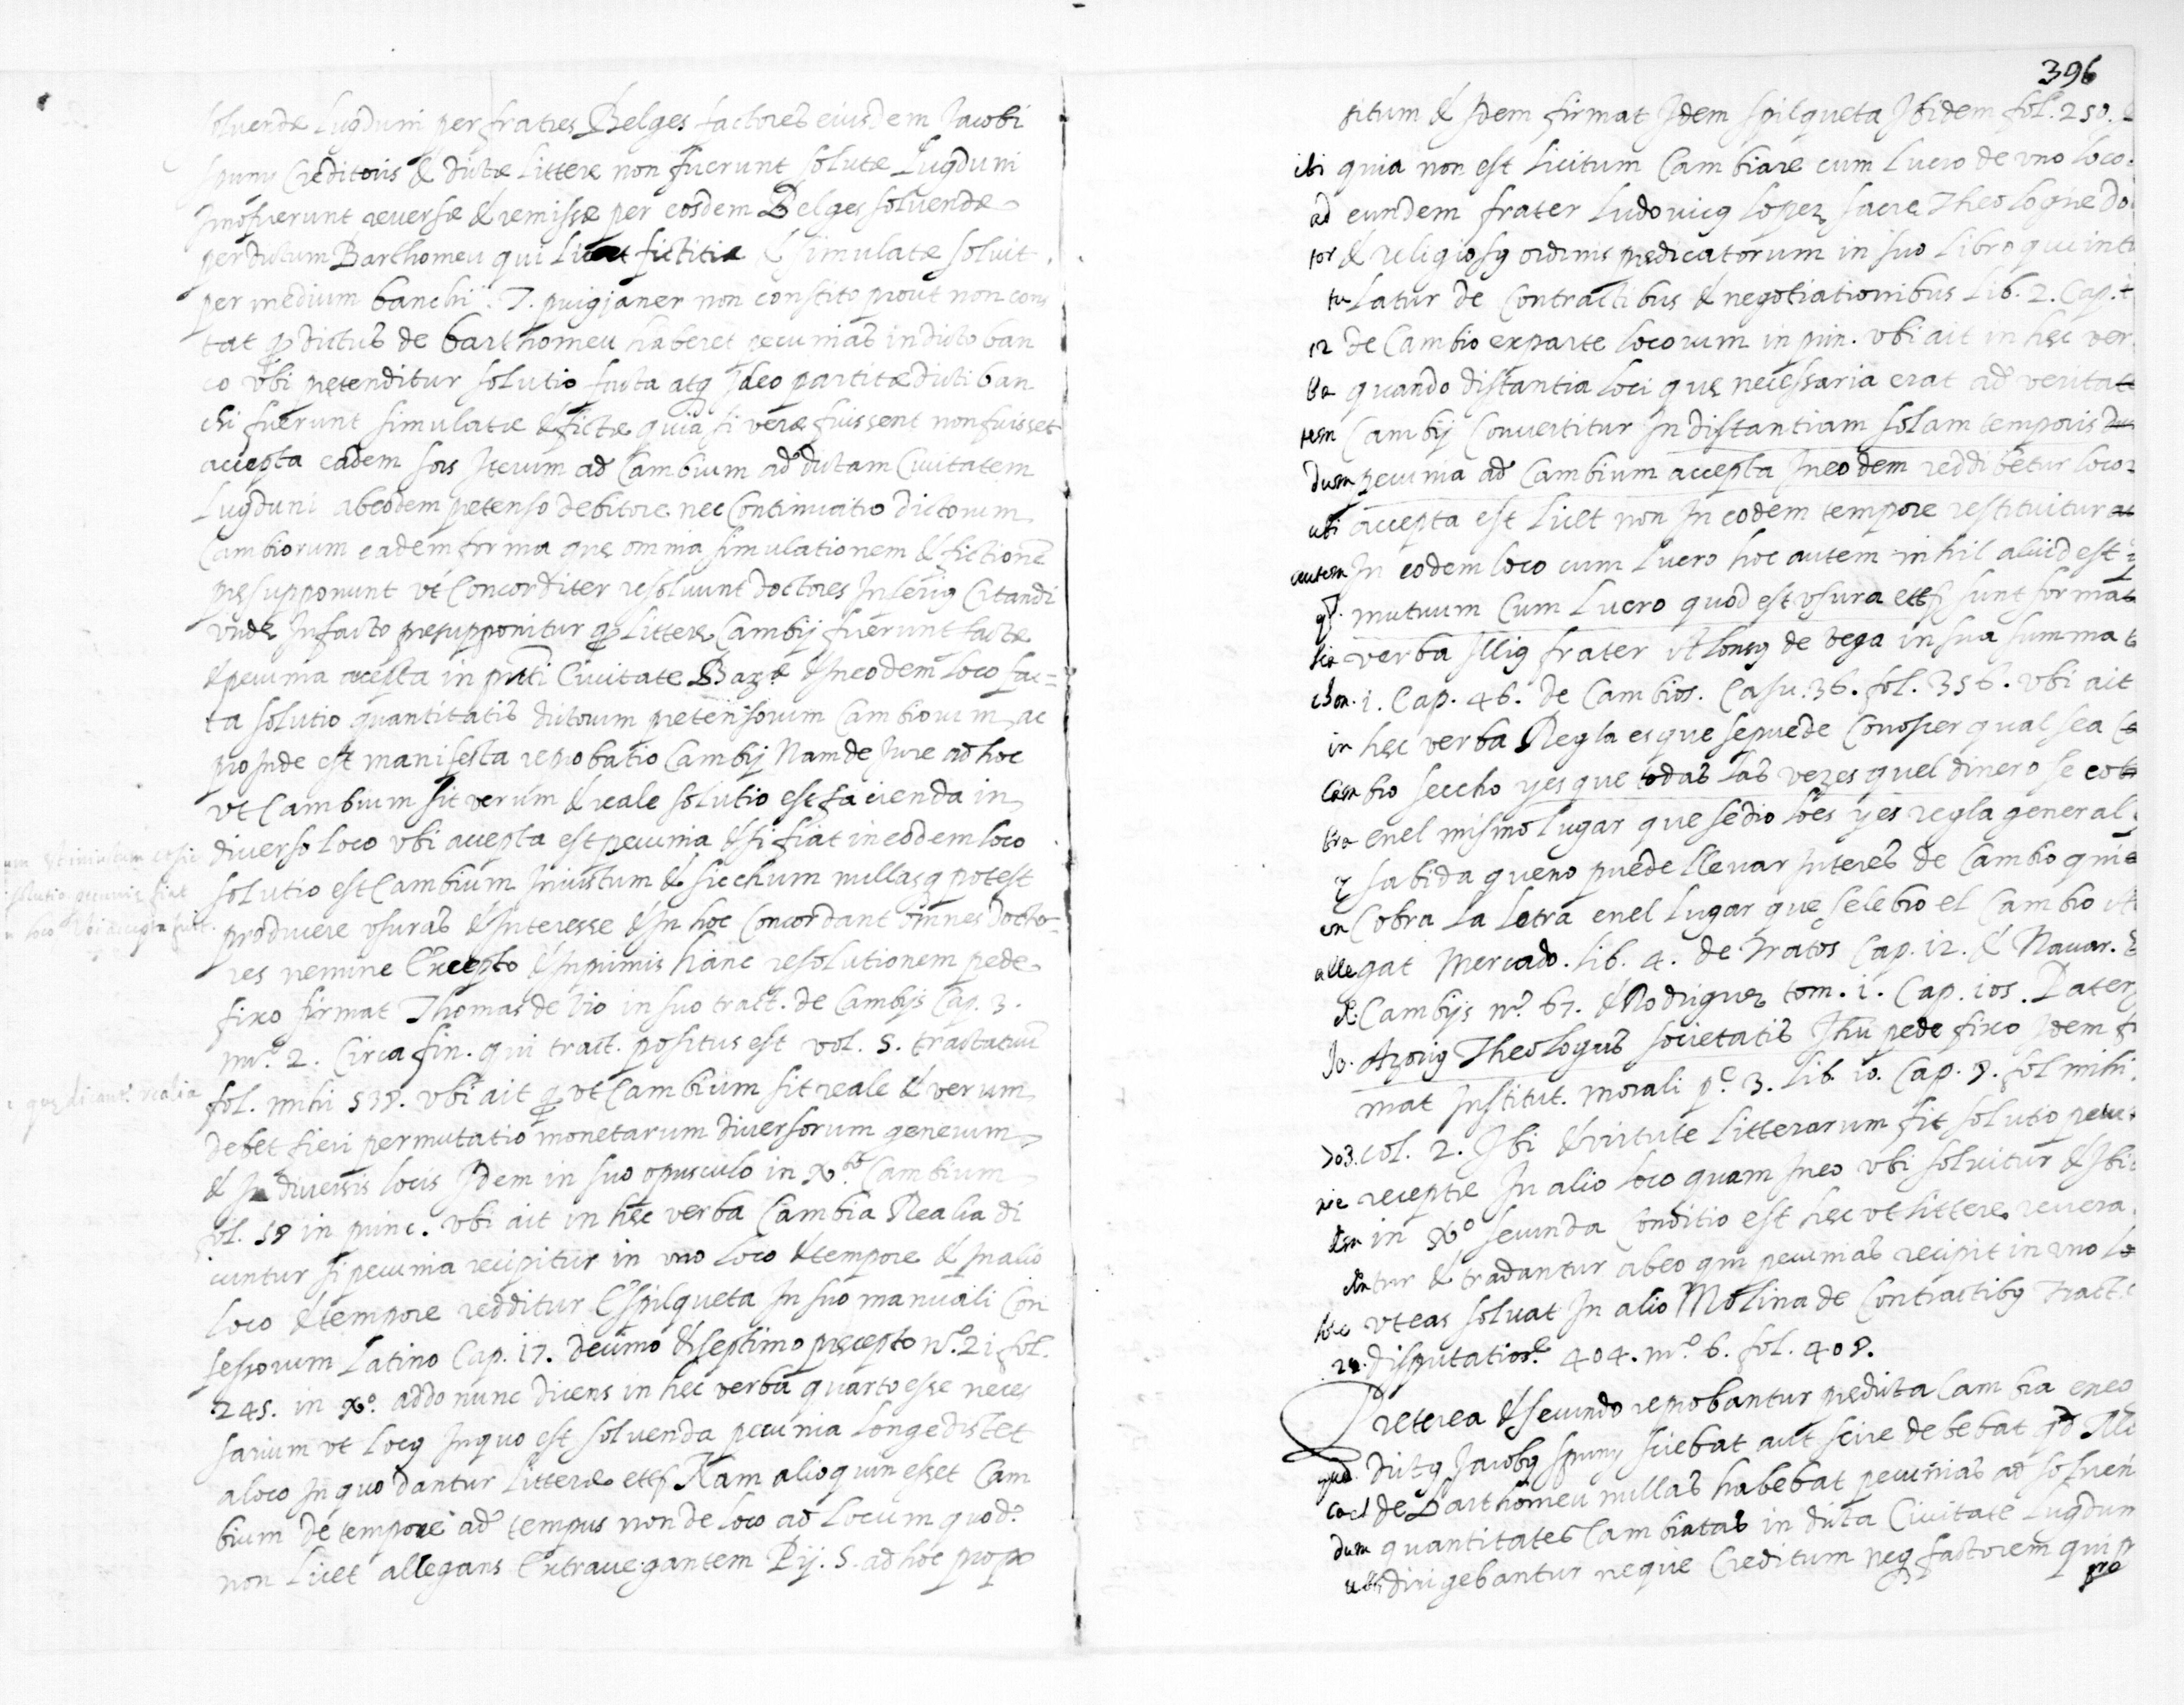 soluende Lugduni per fratres Belges factores eiusdem Jacobi
Spuny Creditoris & dictæ litteræ non fuerunt solutæ Lugduni
Imo fuerunt reuersæ & remissæ per eosdem Belges soluendæ
per dictum Barthomeu qui licet fictitie & simulate soluit
per medium banchi. T. puigjaner non constito prout non cons
tat q dictus de barthomeu haberet pecunias in dicto ban
co vbi pretenditur solutio facta atq Ideo partitæ dicti ban
chi fuerunt simulatæ & fictæ quia si veræ fuissent non fuisset
accepta eadem sors Iterum ad Cambium ad dictam Ciuitatem
Lugduni ab eodem pretenso debitore nec Continuatio dictorum
Cambiorum eadem forma que omnia simulationem & fictionē
presupponunt vt Concorditer resoluunt doctores Inferig Citandi
vnde In facto presupponitur q Litteræ Cambij fuerunt factæ
& pecunia accepta in pnti Ciuitate Barne & In eodem loco fac=
ta solutio quantitatis dictorum pretensorum Cambiorum ac
pro Inde est manifesta reprobatio Cambij Nam de Jure ad hoc
vt Cambium sit verum & reale solutio est facienda in
diuerso loco vbi accepta est pecunia & si fiat in eodem loco
solutio est Cambium Iniustum & sicchum nullasq potest
producere vsuras & Interesse & In hoc Concordant omnes Docto-
res nemine Excepto & Inprimis hanc resolutionem pede
fixo firmat Thomas de Vio in suo tract. de Cambijs Cap. 3.
nu.º 2. Circa fin. qui tract. positus est vol. 5. tractatuū
fol. mihi 538. vbi ait q vt Cambium sit reale & verum
debet fieri permutatio monetarum diuersorum generum
& In diuersis locis Idem in suo opusculo in Cambium
fol. 58 in princ. vbi ait in hęc verba Cambia Realia di
cuntur si pecunia recipitur in vno loco & tempore & In alio
loco & tempore redditur Espilqueta In suo manuali Con
fessorum Latino Cap. 17. decimo & septimo precepto nº. 21 fol.
245. in addo nunc dicens in hęc verba quarto esse neces
sarium vt locg In quo est soluenda pecunia longe distet
a loco In quo dantur litteræ ettᵃ Nam alioquin esset Cam
bium de tempore ad tempus non de loco ad locum quod
non licet allegans Extrauegantem Pij. 5. ad hoc propo
solutio pecunię fiat
n loco Vbi accepta fuit.
quę dicant. realia
396
situm & Idem firmat Idem Spilqueta Ibidem fol. 250.
ibi quia non est licitum Cambiare cum lucro de vno loco
ad eundem frater Ludouicg Lopez sacre Theologie Do
tor & religiosg ordinis predicatorum in suo libro qui inti
tu latur de Contractibus & negotiationibus Lib. 2. Cap.
12 de Cambio ex parte locorum in prin. vbi ait in hęc ver
ba quando distantia loci quę necessaria erat ad verita
tem Cambij Conuertitur In distantiam solam temporis
dum pecunia ad Cambium accepta In eodem reddibetur loco
ubi accepta est licet non In eodem tempore restituitur
autem In eodem loco cum lucro hoc autem nihil aliud est
q. mutuum Cum lucro quod est vsura ettᵃ sunt forma
lia verba Illig frater Alonsg de Vega in sua summa
chon. 1. Cap. 46. de Cambios. Casu. 36. fol. 356. vbi ait
in hęc verba Regla es que se puede Conoscer qual sea
Cam bio seccho y es que todas las vezes quel dinero se cob
bra enel mismo lugar que se dio lo es y es regla general
y sabida que no puede lleuar Interes de Cambio quie
en Cobra la letra enel lugar que celebro el Cambio
alle gat Mercado. lib. 4. de Tratos Cap. 12. & Nauar.
de Cambijs nº. 67. & Rodriguez tom. 1. Cap. 105. Pater
Jo. Azorig Theologus societatis Jħu pede fixo Idem fi
mat Institut. morali pᵉ. 3. Lib. 10. Cap. 8. fol mihi
703. col. 2. Ibi & virtute Litterarum fit solutio pecu
nie receptæ In alio loco quam In eo vbi soluitur & Ibi
dem in secunda Conditio est hęc vt litteræ reuera
dentur & tradantur ab eo qui pecunias recipit in vno lo
vt eas soluat In alio Molina de Contractibg Tract.
disputatioē 404. nº. 6. fol. 408.
Preterea & secundo reprobantur predicta Cambia en eo
quod dictg Jacobg Spuny sciebat aut scire debebat
de Barthomeu nullas habebat pecunias ad soluen
dum quantitates Cambiatas in dicta Ciuitate Lugdun
ubi dirigebantur neque Creditum neq factorem qui pr
pro